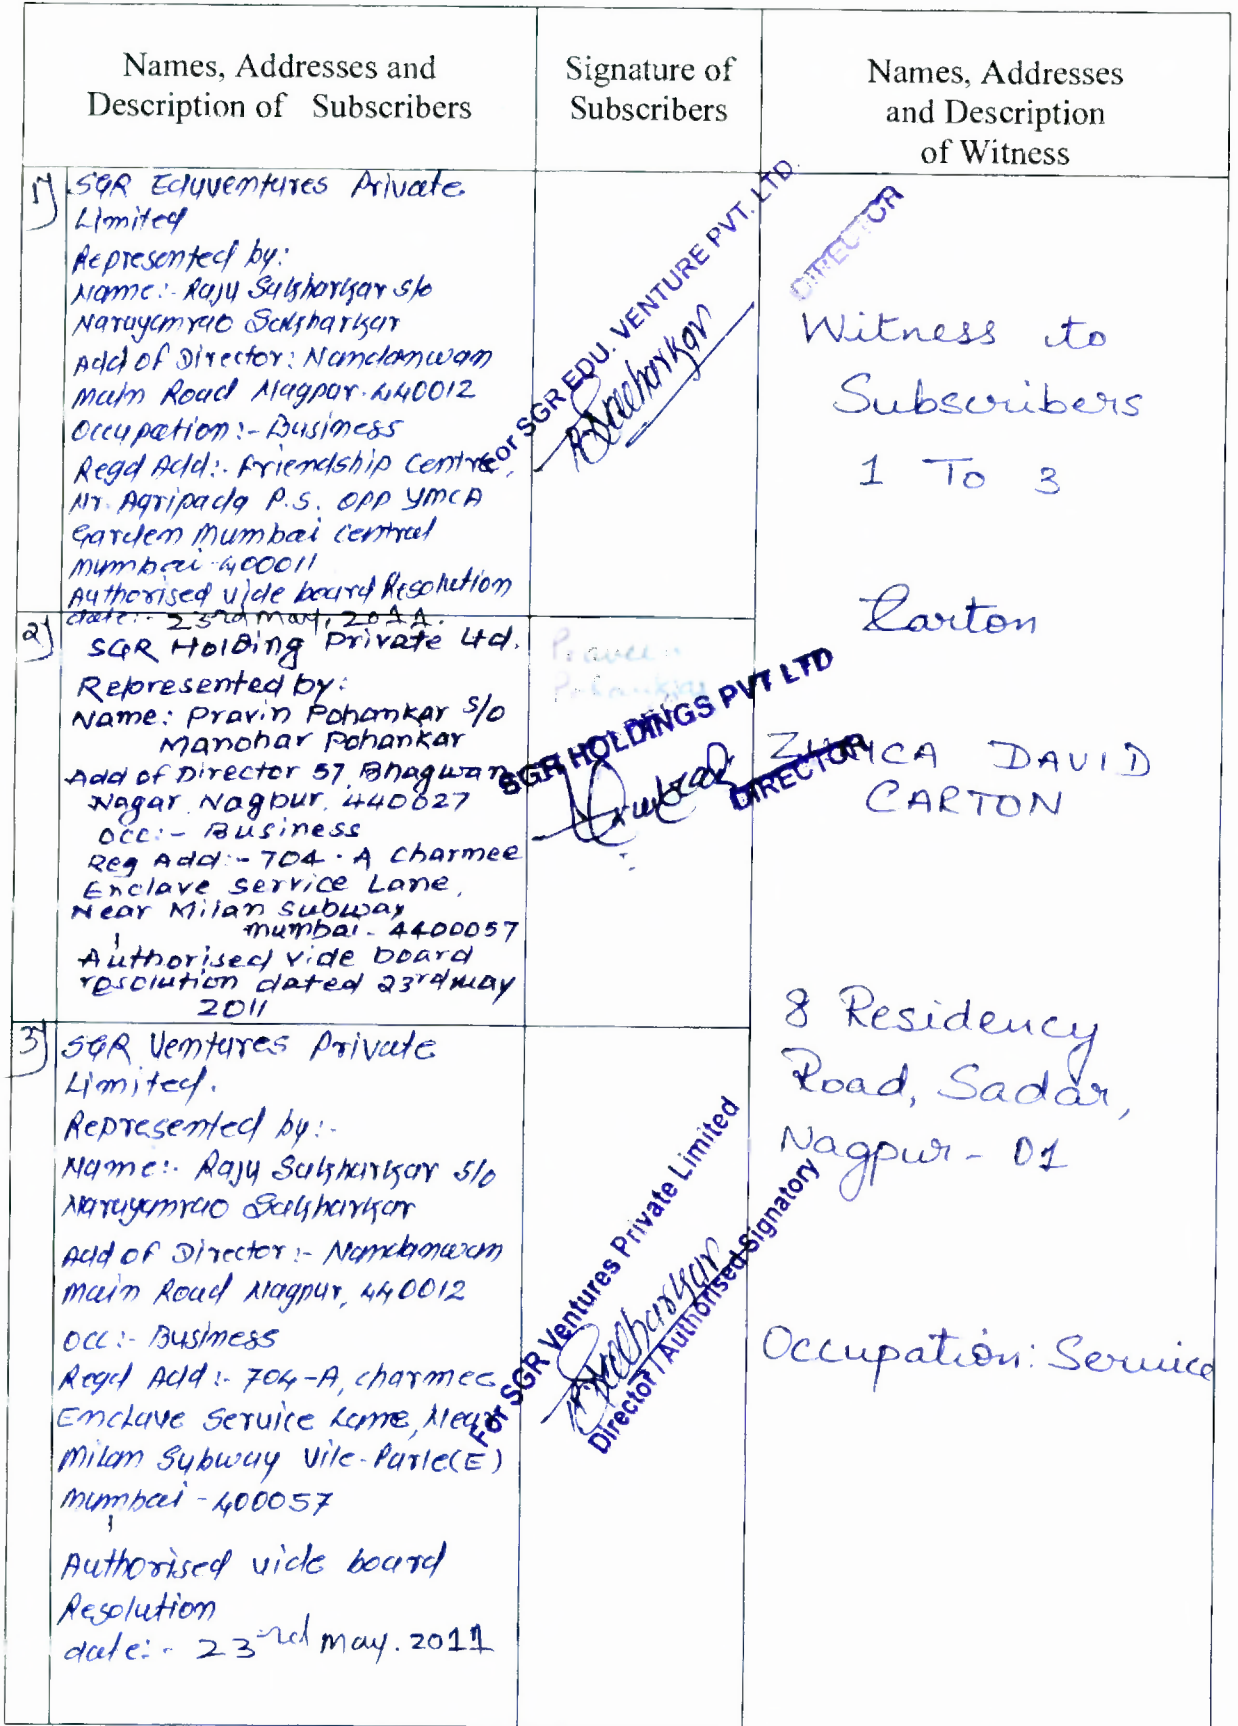 Names, Addresses and
Description of Subscribers
Signature of
Subscribers
Names, Addresses
and Description
of Witness
1)
SGR Eduventures Private
Limited
Represented by:
Name:- Raju Sakharkar s/o
Narayanrao Sakharkar
Add of Director: Nandanwan
Main Road Nagpur. 440012
Occupation:- Business
Regd Add:- Friendship Centre,
Nr. Agripada P.S. opp YMCA
Garden Mumbai Central
Mumbai-400011
Authorised vide board Resolution
date:- 23rd May, 2011.
For SGR EDU. VENTURE PVT. LTD.
DIRECTOR
2)
SGR HolDing Private Ltd.
Represented by:
Name: Pravin Pohankar s/o
Manohar Pohankar
Add of Director 57, Bhagwan
Nagar Nagpur. 440027
occ:- Business
Reg Add:- 704 - A charmee
Enclave service Lane,
Near Milan subway
mumbai - 4400057
Authorised vide board
resolution dated 23rd may
2011
SGR HOLDINGS PVT LTD
DIRECTOR
3)
SGR Ventures Private
Limited.
Represented by:-
Name:- Raju Sakharkar s/o
Narayanrao Sakharkar
Add of Director:- Nandanwan
Main Road Nagpur, 440012
occ:- Business
Regd Add:- 704-A, charmee
Enclave Service Lane, Near
Milan Subway Vile-Parle(E)
Mumbai - 400057
Authorised vide board
Resolution
date:- 23rd may. 2011
For SGR Ventures Private Limited
Director / Authorised Signatory
Witness to
Subscribers
1 To 3
Carton
DAVID
CARTON
8 Residency
Road, Sadar,
Nagpur - 01
Occupation: Service